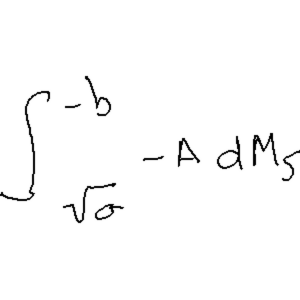 ∫_{√σ}^{-b} -A dM₅